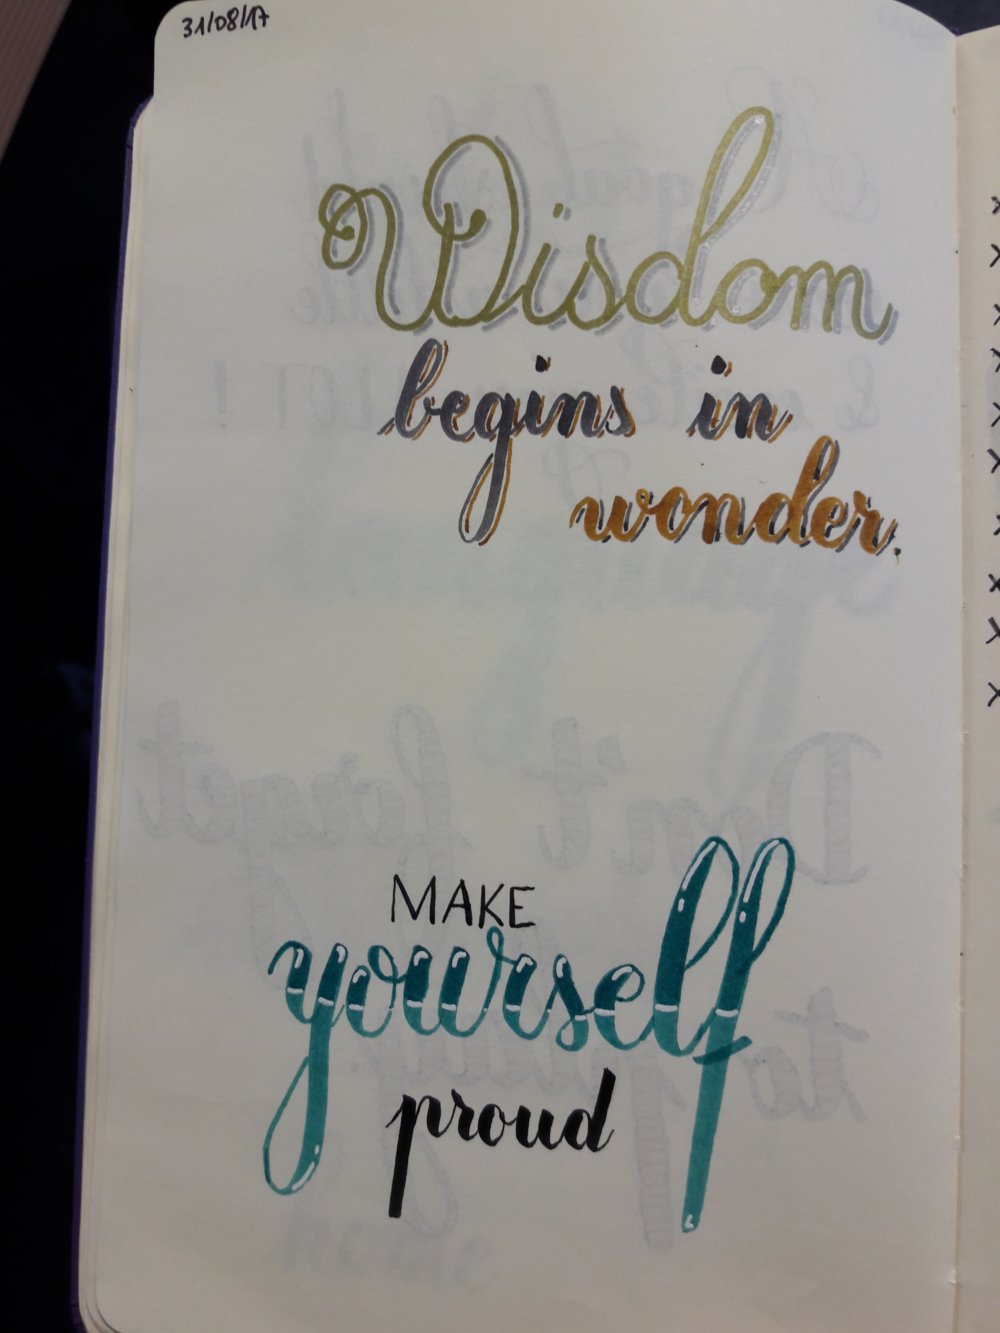 31/08/17
Wisdom
begins in
wonder.
MAKE
yourself
proud